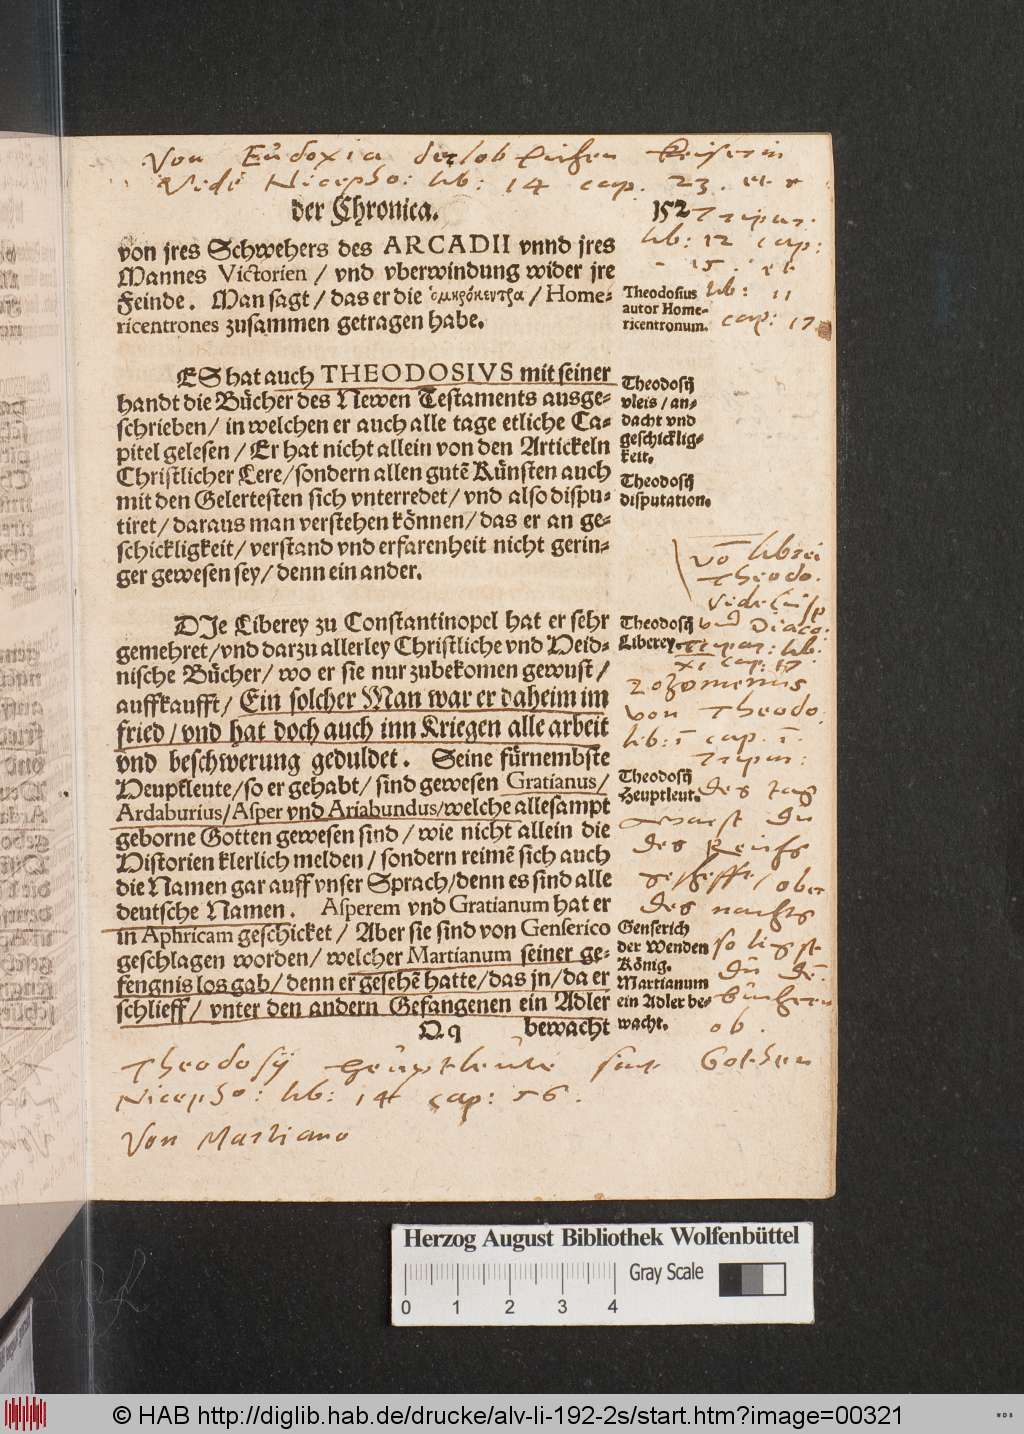 Von Eudoxia der loblichen Keiserin
Vide Nicepho: lib: 14 cap. 23. et
der Chronica. 152
Tripar:
lib: 12 cap:
15. et
lib: 11
cap: 17
von jres Schwehers des ARCADII vnnd jres
Mannes Victorien / vnd vberwindung wider jre
Feinde. Man sagt / das er die ὁμηρόκεντρα / Home-
ricentrones zusammen getragen habe.
Theodosius
autor Home-
ricentronum.
ES hat auch THEODOSIVS mit seiner
handt die Bücher des Newen Testaments ausge-
schrieben / in welchen er auch alle tage etliche Ca-
pitel gelesen / Er hat nicht allein von den Artickeln
Christlicher Lere / sondern allen gutē Künsten auch
mit den Gelertesten sich vnterredet / vnd also dispu-
tiret / daraus man verstehen können / das er an ge-
schickligkeit / verstand vnd erfarenheit nicht gerin-
ger gewesen sey / denn ein ander.
Theodosij
vleis / an-
dacht vnd
geschicklig-
keit.
Theodosij
disputation.
Vō librei
Theodo.
vide
vnd Diaco:
Tripar: lib:
XI cap: 17
DJe Liberey zu Constantinopel hat er sehr
gemehret / vnd darzu allerley Christliche vnd Heid-
nische Bücher / wo er sie nur zubekomen gewust /
auffkaufft / Ein solcher Man war er daheim im
fried / vnd hat doch auch inn Kriegen alle arbeit
vnd beschwerung geduldet. Seine fürnembste
Heupkleute / so er gehabt / sind gewesen Gratianus /
Ardaburius / Asper vnd Ariabundus / welche allesampt
geborne Gotten gewesen sind / wie nicht allein die
Historien klerlich melden / sondern reimē sich auch
die Namen gar auff vnser Sprach / denn es sind alle
deutsche Namen. Asperem vnd Gratianum hat er
in Aphricam geschicket / Aber sie sind von Genserico
geschlagen worden / welcher Martianum seiner ge-
fengnis los gab / denn er gesehē hatte / das jn / da er
schlieff / vnter den andern Gefangenen ein Adler
O. q bewacht
Theodosij
Liberey.
Zozomenus
von Theodo.
lib: 1 cap. 1.
Tripar:
Theodosij
Heuptleut.
des tag
du
des Reichs
gescheffte / aber
des nachts
so ligst
du den
büchern
ob.
Genserich
der Wenden
König.
Martianum
ein Adler be-
wacht.
Theodosij Heuptleute sint Gothen
Nicepho: lib: 14 cap: 56.
Von Martiano
Herzog August Bibliothek Wolfenbüttel
Gray Scale
0 1 2 3 4
© HAB http://diglib.hab.de/drucke/alv-li-192-2s/start.htm?image=00321